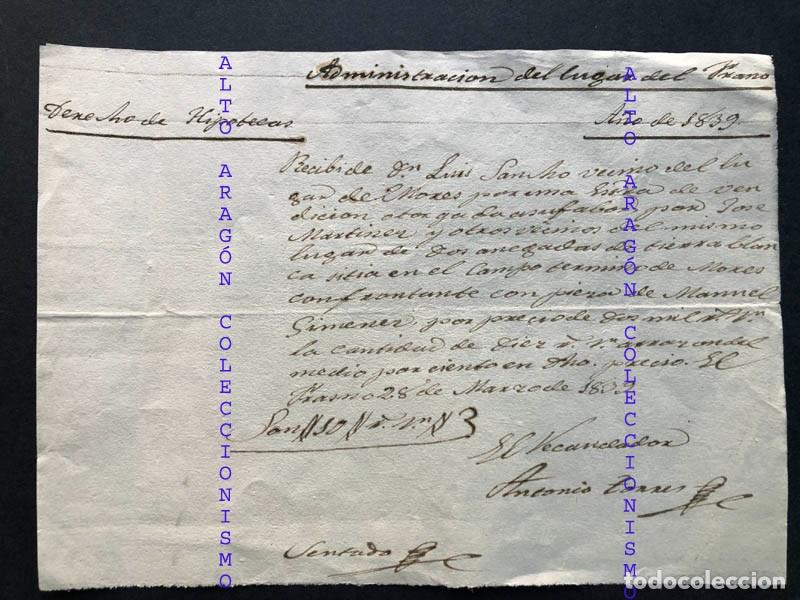 Administracion del lugar del Frasno
Derecho de Hipotecas
Año de 1839
Recibi de Dn. Luis Sancho vecino del lu
gar de Mores por una Escra de ven
dicion otorgada a su fabor por Jose
Martinez y otros vecinos del mismo
lugar de dos anegadas de tierra blan
ca sitia en el Campo termino de Mores
confrontante con pieza de Manuel
Gimenez, por precio de Dos mil rs. vn
la cantidad de Diez rs. vn a razon del
medio por ciento en dho. precio. El
Frasno 28 de Marzo de 1839
Son // 10 // rs. vn //
El Recaudador
Antonio Torres
Sentado
ALTO ARAGÓN COLECCIONISMO
ALTO ARAGÓN COLECCIONISMO
todocoleccion